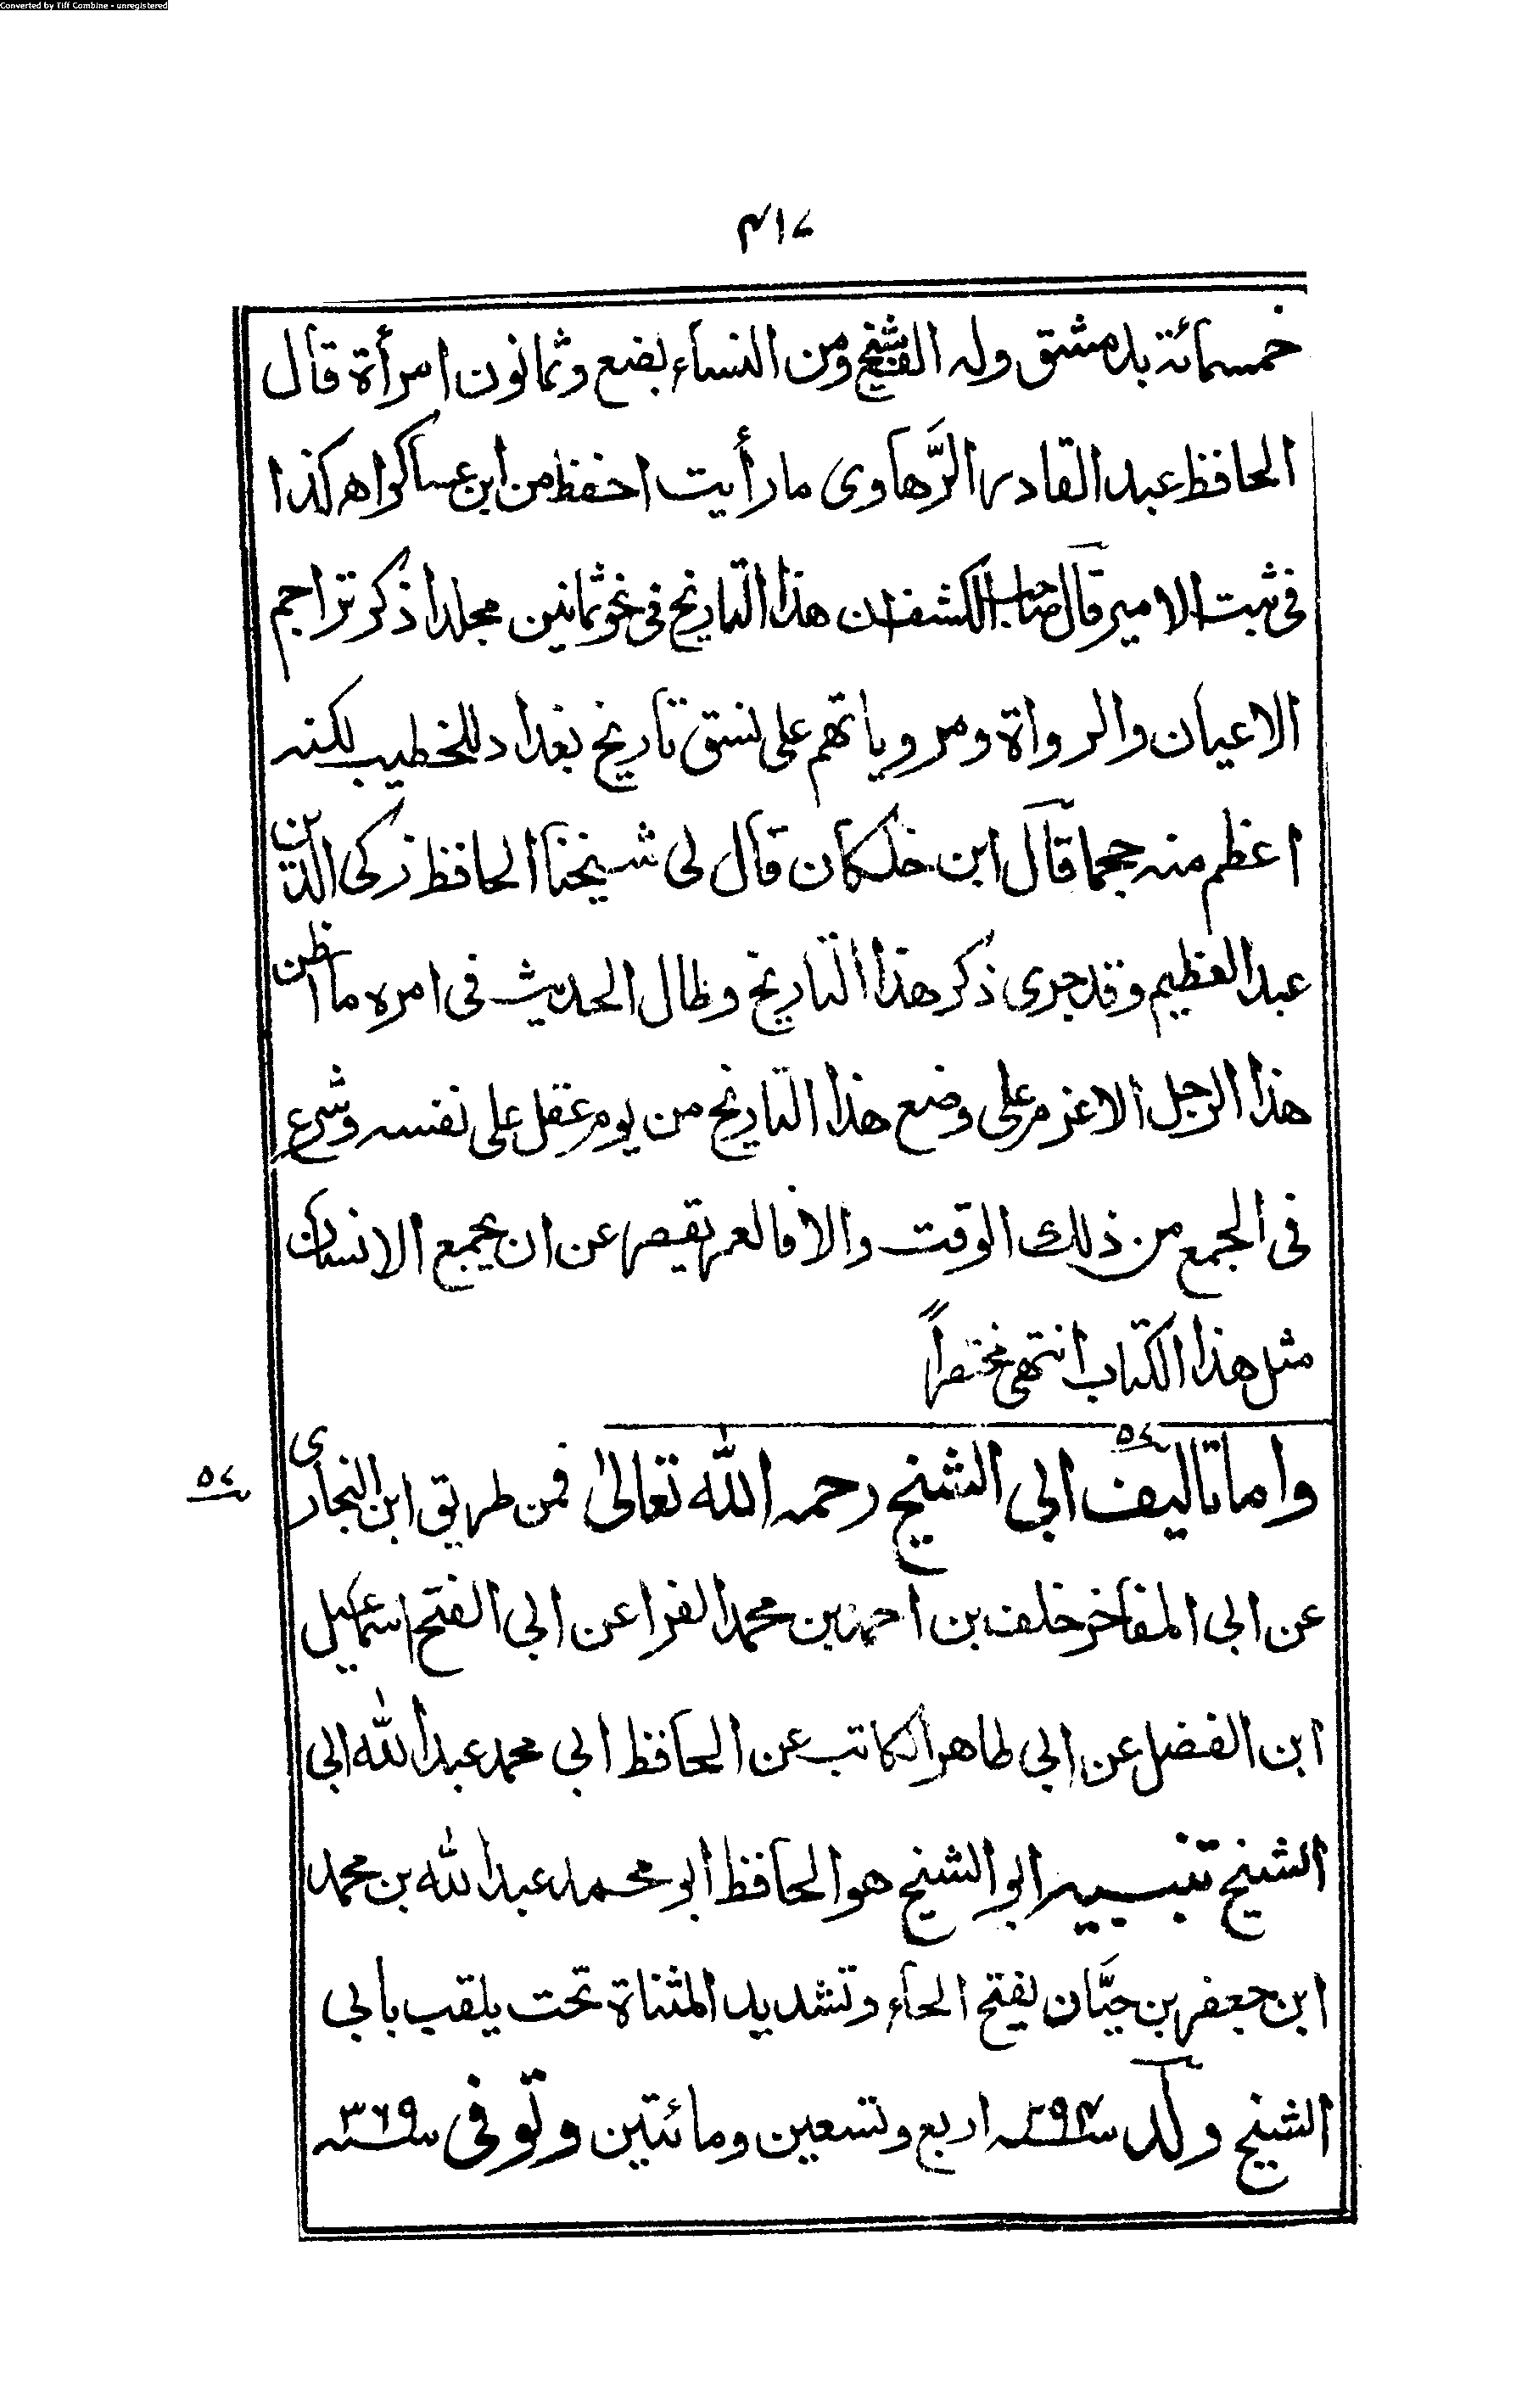 Converted by Tiff Combine - unregistered
۴۱۷
خمسمائة بدمشق وله الف شيخ ومن النساء بضع وثمانون امرأة قال
الحافظ عبد القادر الرَّهاوى ما رأيت احفظ من ابن عساكر اهـ كذا
فى ثبت الامير قال صاحب الكشف ان هذا التاريخ فى نحو ثمانين مجلدا ذكر تراجم
الاعيان والرواة ومروياتهم على نسق تاريخ بغداد للخطيب لكنه
اعظم منه حجما قال ابن خلكان قال لى شيخنا الحافظ زكى الدين
عبد العظيم وقد جرى ذكر هذا التاريخ وطال الحديث فى امره ما اظن
هذا الرجل الا عزم على وضع هذا التاريخ من يوم عقل على نفسه وشرع
فى الجمع من ذلك الوقت والا فالعمر يقصر عن ان يجمع الانسان
مثل هذا الكتاب انتهى مختصراً
۵۷
واما تاليف ابى الشيخ رحمه الله تعالىٰ فمن طريق ابن النجارى
۵۷
عن ابى المفاخر خلف بن احمد بن محمد الفرا عن ابى الفتح اسماعيل
ابن الفضل عن ابى طاهر الكاتب عن الحافظ ابى محمد عبد الله ابى
الشيخ تنبيه ابو الشيخ هو الحافظ ابو محمد عبد الله بن محمد
ابن جعفر بن حيَّان بفتح الحاء وتشديد المثناة تحت يلقب بابى
الشيخ ولد سنه ۲۹۴ اربع وتسعين ومائتين وتوفى سنه ۳۶۹